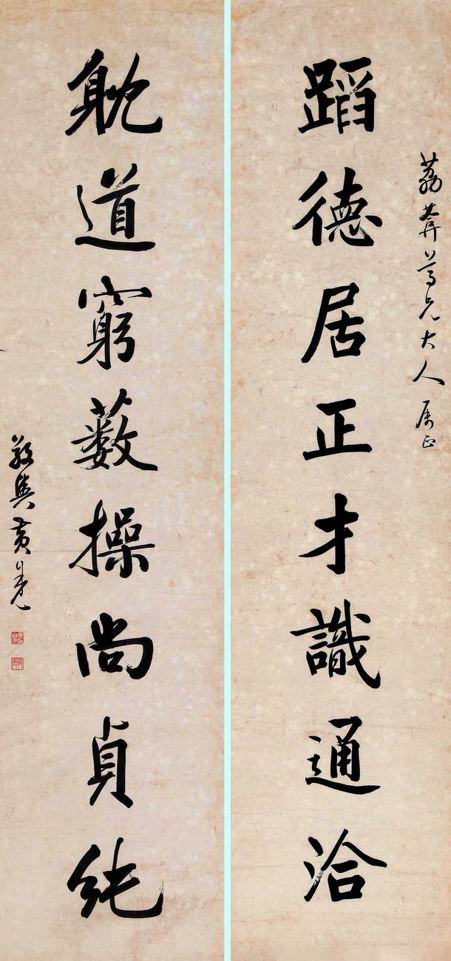 荔莽尊兄大人属正
蹈德居正才識通洽
躭道窮藪操尚貞純
黃自元